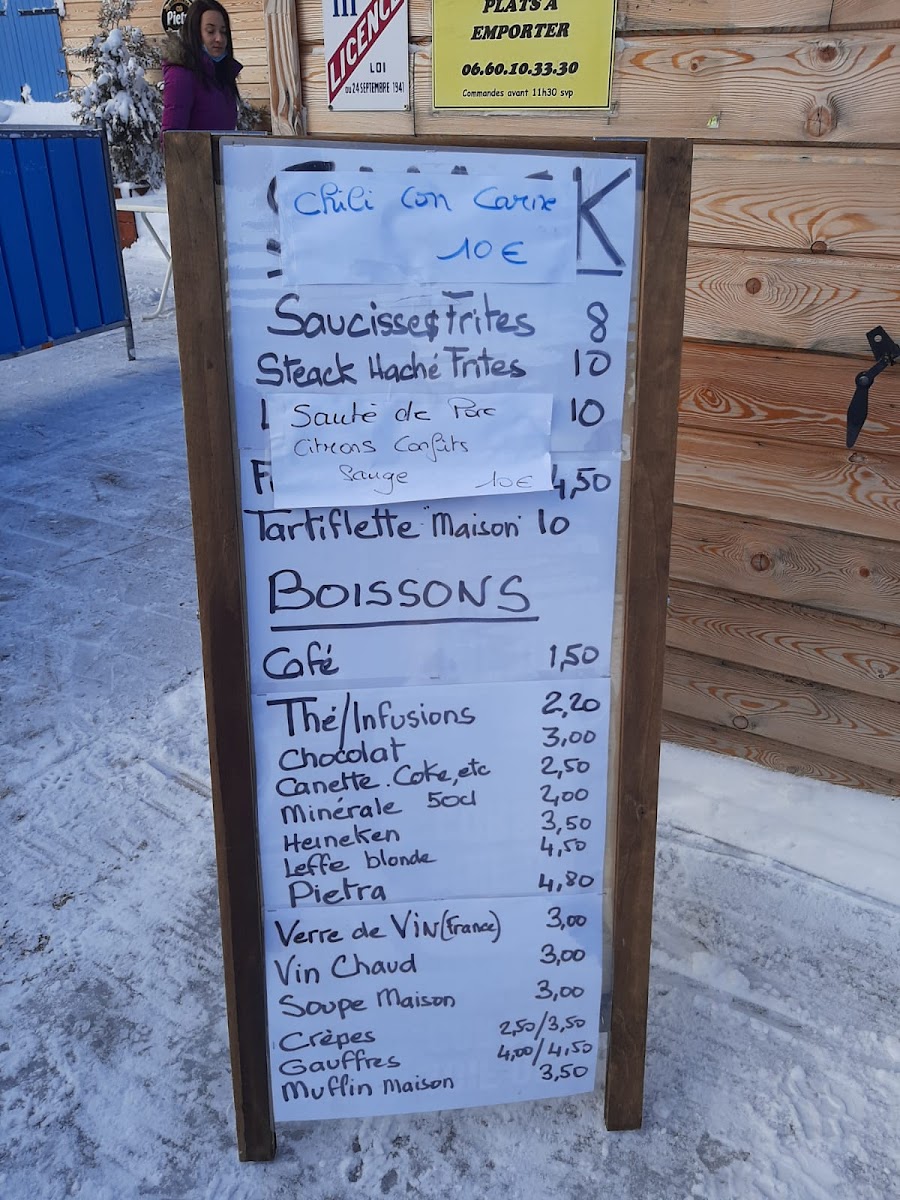 Piet
III
LICENCE
LOI
DU 24 SEPTEMBRE 1941
PLATS A
EMPORTER
06.60.10.33.30
Commandes avant 11h30 svp
K
Chili Con Carne
10€
Saucisses Frites 8
Steack Haché Frites 10
10
Sauté de Porc
Citrons Confits
Sauge 10€
F 4,50
Tartiflette "Maison" 10
BOISSONS
Café 1,50
Thé/Infusions 2,20
Chocolat 3,00
Canette.Coke,etc 2,50
Minérale 50cl 2,00
Heineken 3,50
Leffe blonde 4,50
Pietra 4,80
Verre de Vin (France) 3,00
Vin Chaud 3,00
Soupe Maison 3,00
Crèpes 2,50/3,50
Gauffres 4,00/4,50
Muffin Maison 3,50